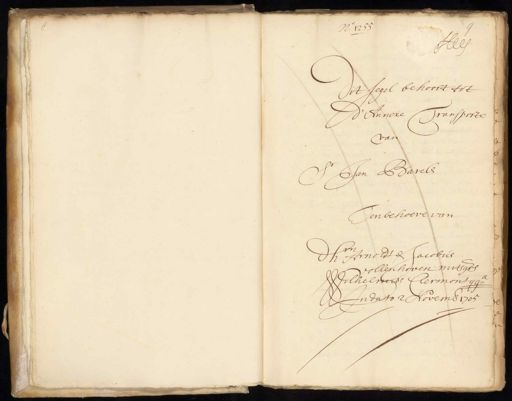 No 1255
Dit segel behoort tot
D'Annexe Transporte
van
Sr Jan Barels
Ten behoeve van
Dhrn Arnoldt & Jacobus
vollenhoven mitsgrs
Wilhelmus Clermont
In dato 2 Novemb 1705